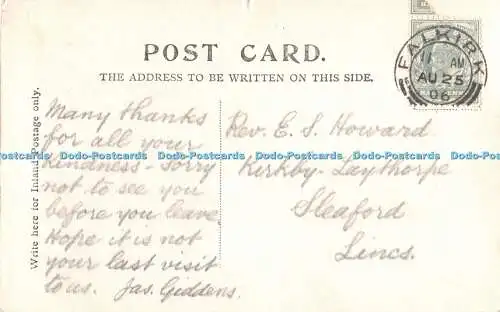 POST CARD.
THE ADDRESS TO BE WRITTEN ON THIS SIDE.
Write here for Inland Postage only.
FALKIRK
11 AM
AU 25
06
Many thanks
for all your
kindness - sorry
not to see you
before you leave.
Hope it is not
your last visit
to us. Jas. Giddens.
Rev. E. S. Howard
Kirkby-Laythorpe
Sleaford
Lincs.
Dodo-Postcards Dodo-Postcards Dodo-Postcards Dodo-Postcards Dodo-Postcards